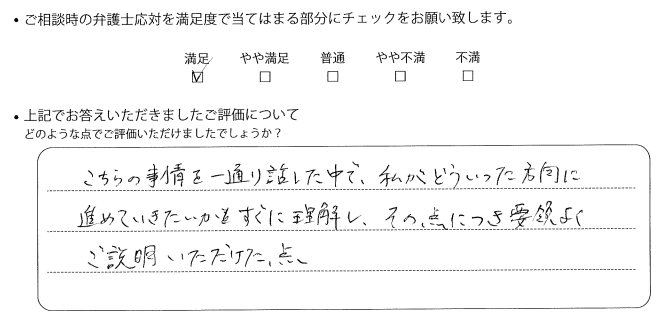 ・ご相談時の弁護士応対を満足度で当てはまる部分にチェックをお願い致します。
満足 やや満足 普通 やや不満 不満
☑ □ □ □ □
・上記でお答えいただきましたご評価について
どのような点でご評価いただけましたでしょうか？
こちらの事情を一通り話した中で、私がどういった方向に
進めていきたいかをすぐに理解し、その点につき要領よく
ご説明いただけた点。